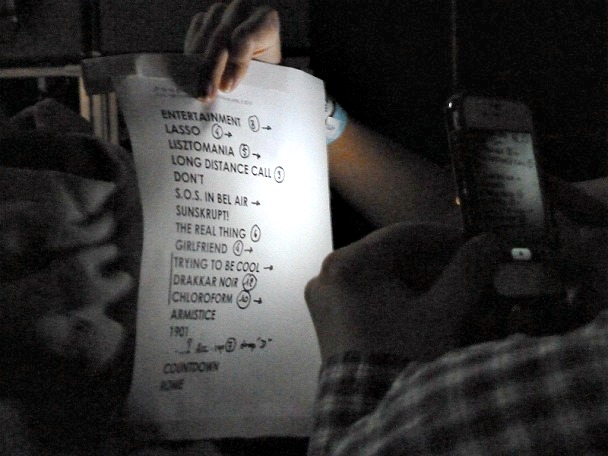 ENTERTAINMENT 8 →
LASSO 4 →
LISZTOMANIA 5 →
LONG DISTANCE CALL 3
DON'T
S.O.S. IN BEL AIR →
SUNSKRUPT!
THE REAL THING 6
GIRLFRIEND 4 →
TRYING TO BE COOL →
DRAKKAR NOIR
CHLOROFORM 20 →
ARMISTICE
1901
COUNTDOWN
ROME